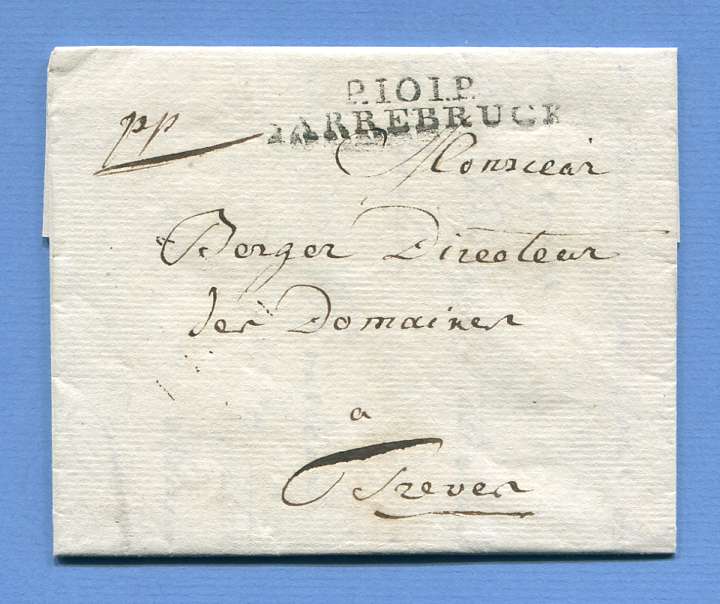 P.101.P.
SARREBRUCK
pp
Monsieur
Berger Directeur
des Domaines
a
Treves